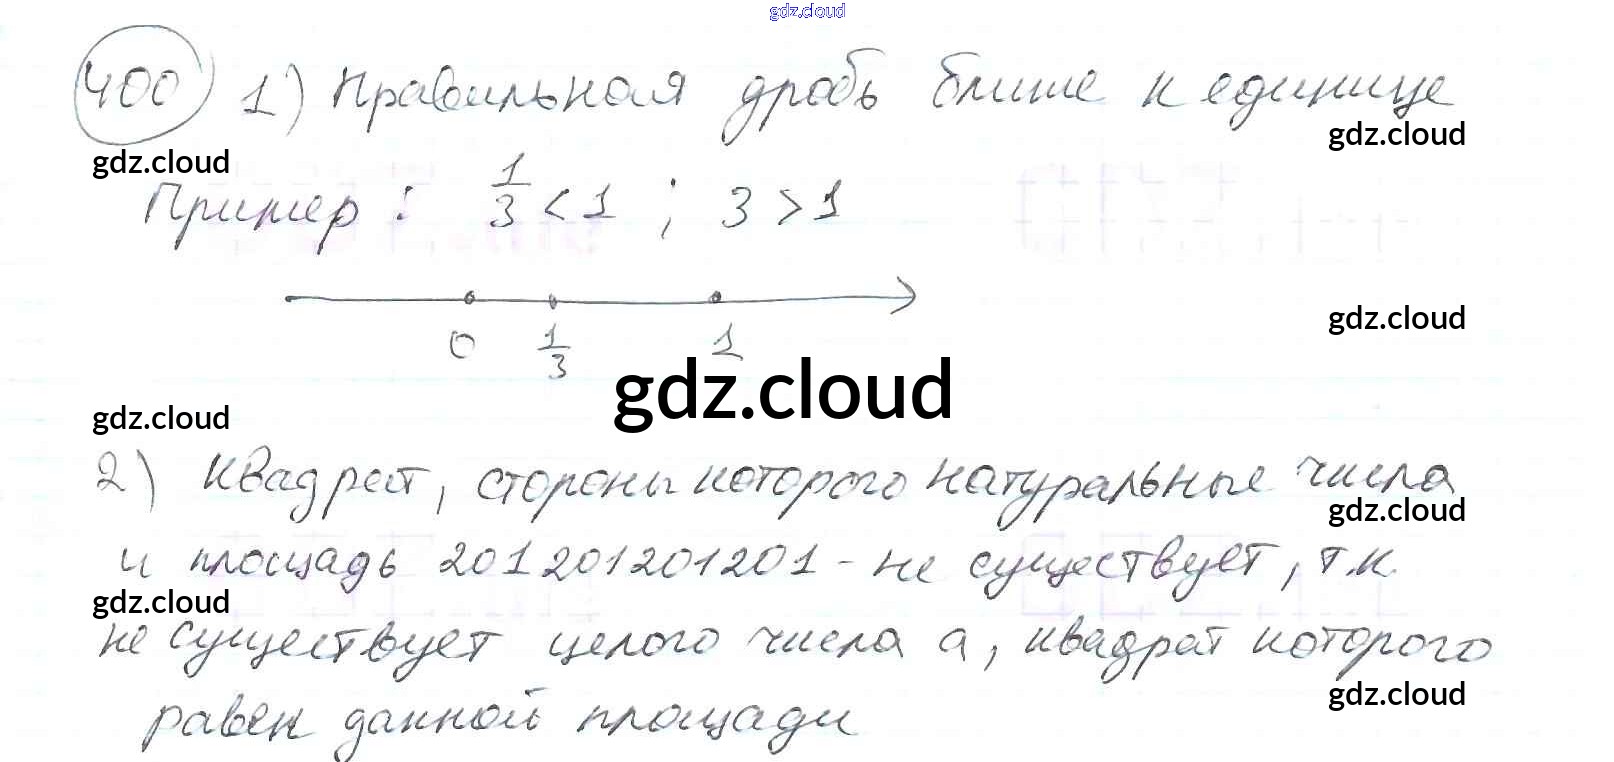 gdz.cloud
400 1) Правильная дробь ближе к единице
gdz.cloud
gdz.cloud
Пример : 1/3 < 1 ; 3 > 1
gdz.cloud
0 1/3 1
gdz.cloud
gdz.cloud
2) Квадрат, стороны которого натуральные числа
gdz.cloud
и площадь 201201201201 - не существует, т.к.
gdz.cloud
не существует целого числа а, квадрат которого
gdz.cloud
равен данной площади